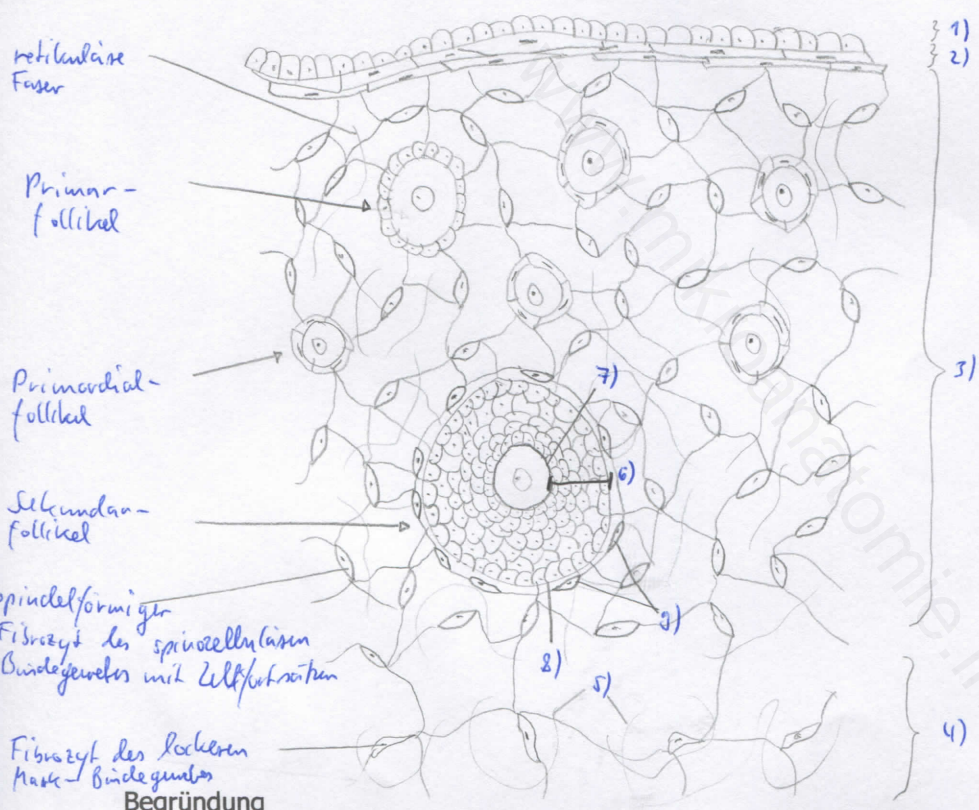 retikuläre
Faser
Primär-
follikel
Primordial-
follikel
Sekundär-
follikel
spindelförmiger
Fibrozyt des spinozellulären
Bindegewebes mit Zellfortsätzen
Fibrozyt des lockeren
Mark-Bindegewebes
Begründung
1)
2)
3)
4)
5)
6)
7)
8)
9)
www.mikroanatomie.